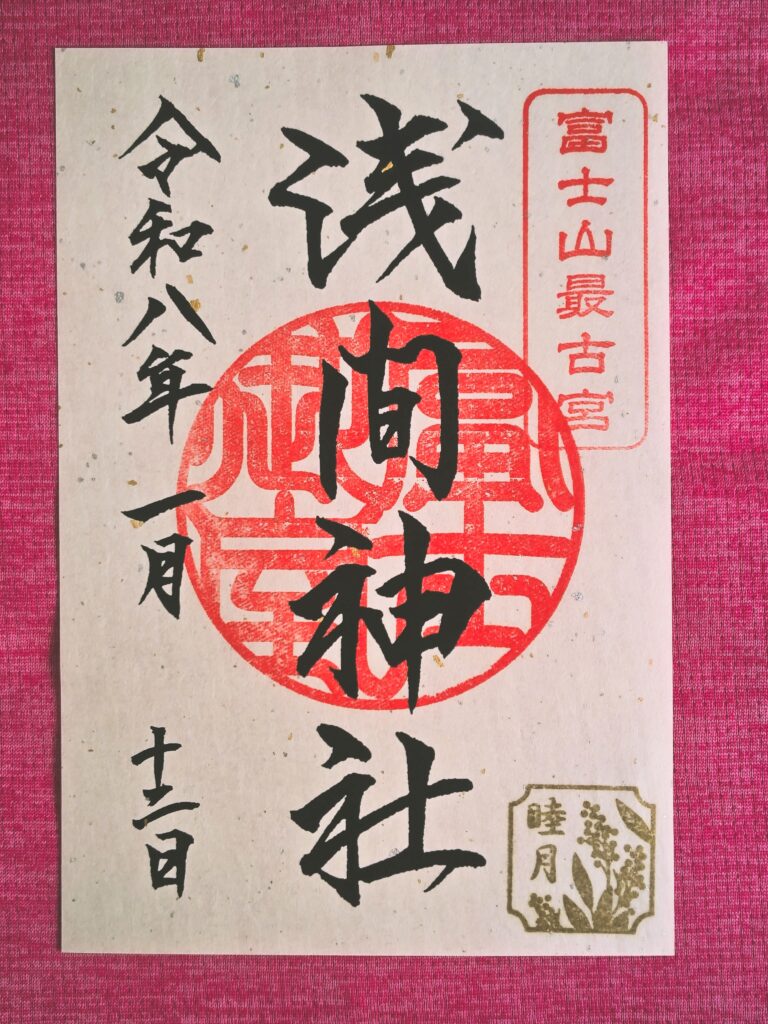 富士山最古宮
浅間神社
富士
御室
令和八年一月十二日
睦月